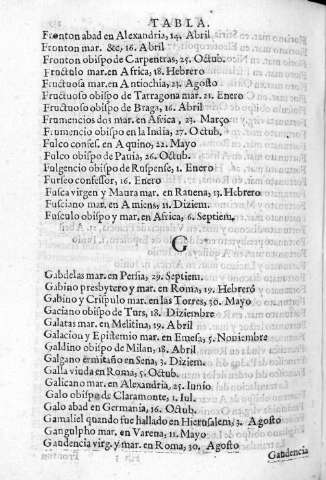 TABLA.
Fronton abad en Alexandria, 14. Abril
Fronton mar. &c, 16. Abril
Fronton obispo de Carpentras, 25. Octub.
Fructulo mar. en Africa, 18. Hebrero
Fructuosa mar. en Antiochia, 23. Agosto
Fructuoso obispo de Tarragona mar. 21. Enero
Fructuoso obispo de Braga, 16. Abril
Frumencios dos mar. en Africa, 23. Março
Frumencio obispo en la India, 27. Octub.
Fulco confess. en Aquino, 22. Mayo
Fulco obispo de Pauia, 26. Octub.
Fulgencio obispo de Ruspense, 1. Enero
Furseo confessor, 16. Enero
Fusca virgen y Maura mar. en Rauena, 13. Hebrero
Fusciano mar. en Amiens, 11. Diziem.
Fusculo obispo y mar. en Africa, 6. Septiem.
G
Gabdelas mar. en Persia, 29. Septiem.
Gabino presbytero y mar. en Roma, 19. Hebrero
Gabino y Crispulo mar. en las Torres, 30. Mayo
Gaciano obispo de Turs, 18. Diziembre
Galatas mar. en Melitina, 19. Abril
Galacion y Epistemio mar. en Emesa, 5. Nouiembre
Galdino obispo de Milan, 18. Abril
Galgano ermitaño en Sena, 3. Diziem.
Galla viuda en Roma, 5. Octub.
Galicano mar. en Alexandria, 25. Iunio
Galo obispo de Claramonte, 1. Iul.
Galo abad en Germania, 16. Octub.
Gamaliel quando fue hallado en Hierusalem, 3. Agosto
Gangulpho mar. en Varena, 11. Mayo
Gaudencia virg. y mar. en Roma, 30. Agosto
Gaudencia